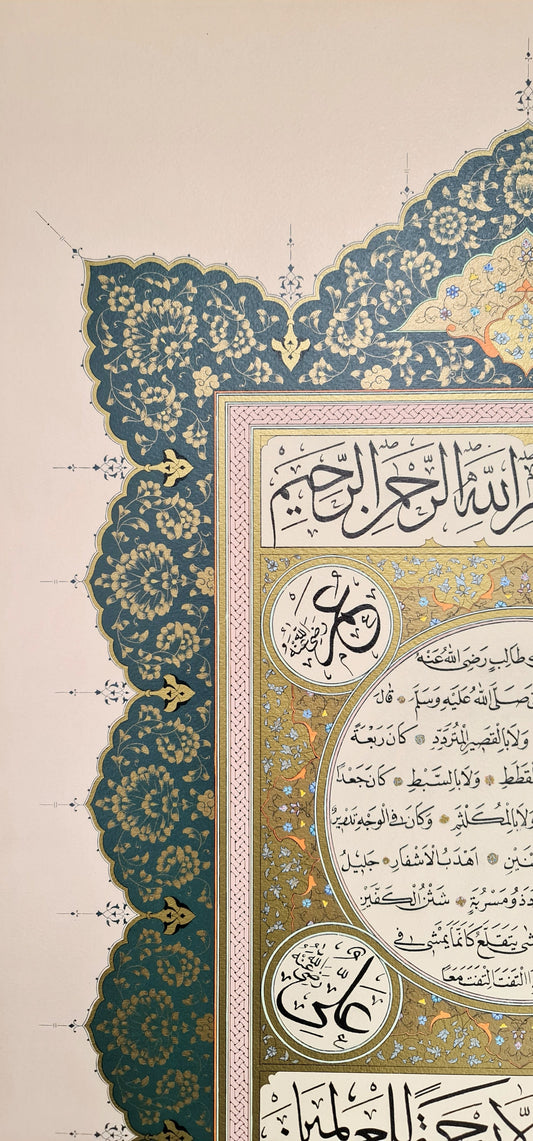 اللّٰهِ الرَّحْمٰنِ الرَّحِيمِ
عمر رضي الله عنه
طالب رَضِيَ اللهُ عَنْهُ
صَلَّى اللهُ عَلَيْهِ وَسَلَّمَ قَالَ
وَلَا بِالْقَصِيرِ الْمُتَرَدِّدِ كَانَ رَبْعَةً
الْقَطَطِ وَلَا بِالسَّبْطِ كَانَ جَعْدًا
وَلَا بِالْمُكَلْثَمِ وَكَانَ فِي الْوَجْهِ تَدْوِيرٌ
اَهْدَبُ الْاَشْفَارِ جَلِيلُ
ذُو مَسْرُبَةٍ شَثْنُ الْكَفَّيْنِ
يَتَقَلَّعُ كَاَنَّمَا يَمْشِي فِي
الْتَفَتَ الْتَفَتَ مَعًا
علي رضي الله عنه
رَحْمَةً لِلْعَالَمِينَ